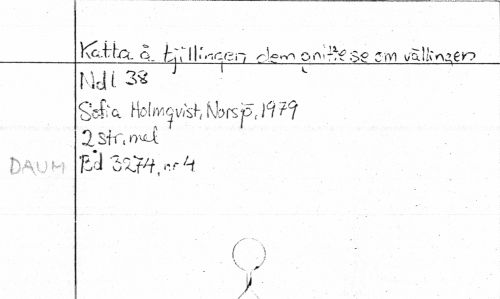 Katta å tjillingen dem onitte se om vällingen
Ndl 38
Sofia Holmqvist, Norsjö, 1979
2 str, mel
DAUM Bd 3274, nr 4